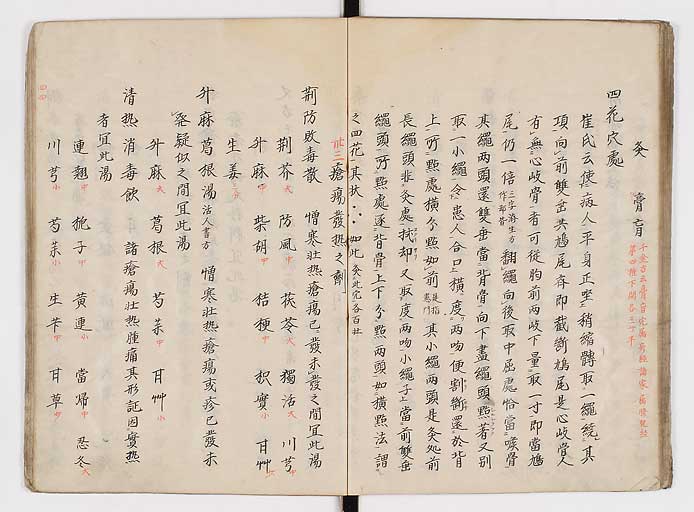 灸 膏肓
四花穴處
崔氏云使病人平身正坐稍縮膊取一繩繞其
項向前雙垂共鳩尾齊即截斷鳩尾是心岐骨人
有無心岐骨者可從胸前兩岐下量取一寸即當鳩
尾仍一倍 翻繩向後取中屈處恰當喉骨
其繩兩頭還雙垂當背骨向下盡繩頭點著又別
取一小繩令患人合口橫度兩吻便割斷還於背
上所點處橫分點如前 其小繩兩頭是灸處前
長繩頭非灸處拭却又取度兩吻小繩子當前雙垂
繩頭所點處逐背骨上下分點兩頭如橫點法謂
之四花其狀 如此灸此穴各百壯
廿二 瘡瘍發熱之劑
荊防敗毒散 憎寒壯熱瘡瘍已發未發之間宜此湯
荊芥大 防風中 茯苓大 獨活大 川芎中
升麻中 柴胡中 桔梗中 枳實小 甘艸
生姜
升麻葛根湯 活人書方 憎寒壯熱瘡瘍或疹已發未
發疑似之間宜此湯
升麻大 葛根大 芍薬中 甘艸小
清熱消毒飲 諸瘡瘍壯熱腫痛其形証因實熱
者宜此湯
連翹中 梔子中 黃連小 當帰中 忍冬大
川芎小 芍薬小 生芐中 甘草
四四